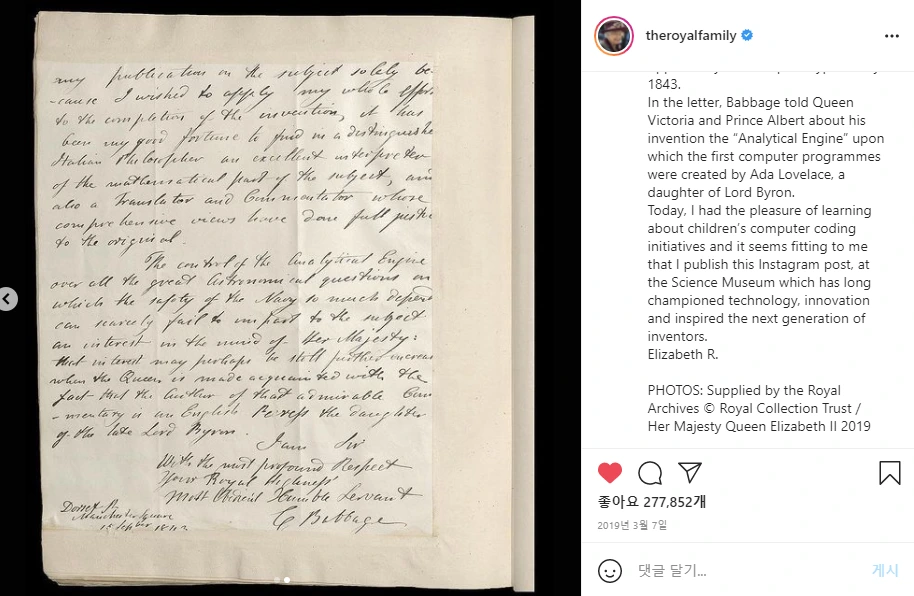 my publication on the subject solely be-
-cause I wished to apply my whole effor
to the completion of the invention, it has
been my good fortune to find in a distinguishe
Italian Philosopher an excellent interpreter
of the mathematical part of the subject, and
also a Translator and Commentator whose
comprehensive views have done full justice
to the original.
The control of the Analytical Engine
over all the great Astronomical questions on
which the safety of the Navy so much depend
can scarcely fail to impart to the subject
an interest in the mind of Her Majesty:
that interest may perhaps be still further increas
when the Queen is made acquainted with the
fact that the author of that admirable Com
-mentary is an English Peeress the daughter
of the late Lord Byron.
I am Sir
With the most profound Respect
Your Royal Highness'
Most Obedient Humble Servant
C Babbage
Dorset St
Manchester Square
theroyalfamily
1843.
In the letter, Babbage told Queen
Victoria and Prince Albert about his
invention the “Analytical Engine” upon
which the first computer programmes
were created by Ada Lovelace, a
daughter of Lord Byron.
Today, I had the pleasure of learning
about children’s computer coding
initiatives and it seems fitting to me
that I publish this Instagram post, at
the Science Museum which has long
championed technology, innovation
and inspired the next generation of
inventors.
Elizabeth R.
PHOTOS: Supplied by the Royal
Archives © Royal Collection Trust /
Her Majesty Queen Elizabeth II 2019
좋아요 277,852개
2019년 3월 7일
댓글 달기...
게시